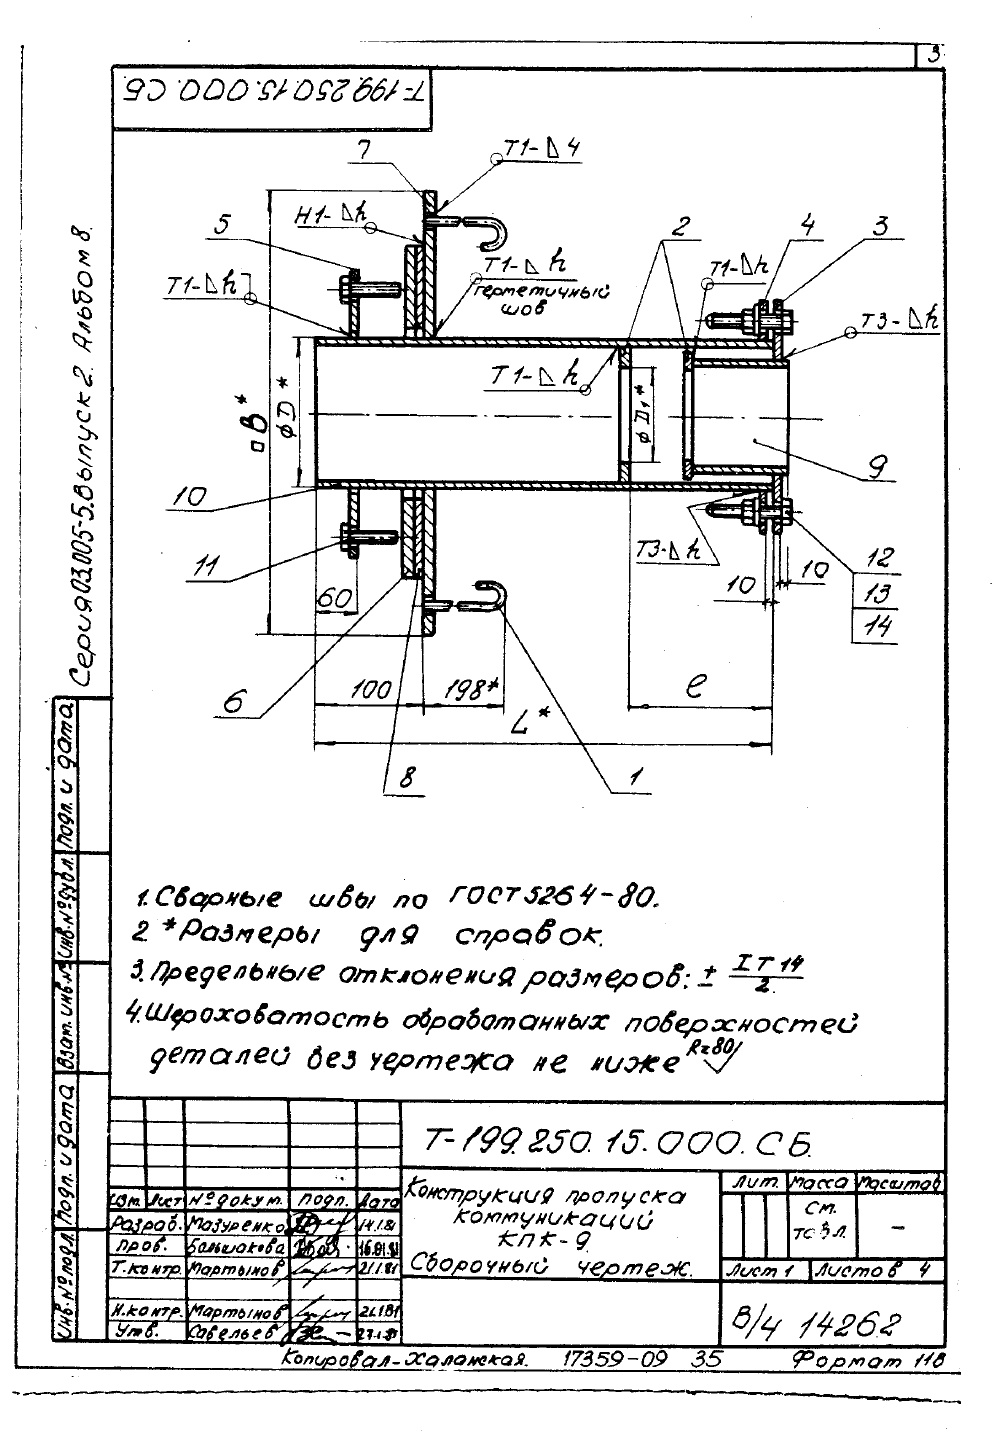 3
Т-199.250.15.000.СБ
Серия 03.005-5. Выпуск 2. Альбом 8.
7
Т1-⊿4
5
Н1-⊿h
2
4
3
Т1-⊿h
Т1-⊿h
герметичный
шов
Т1-⊿h
Т3-⊿h
Т1-⊿h
□B*
⌀D*
⌀D₁*
9
10
11
Т3-⊿h
12
13
14
60
10
10
6
100
198*
e
L*
8
1
1. Сварные швы по ГОСТ 5264-80.
2. *Размеры для справок.
3. Предельные отклонения размеров: ± IT14/2.
4. Шероховатость обработанных поверхностей
деталей без чертежа не ниже Rz80
Подп. и дата
Инв.№дубл.
Взам. инв.№
Подп. и дата
Инв.№подл.
Т-199.250.15.000.СБ.
Изм. Лист №докум. Подп. Дата
Разраб. Мазуренко 14.1.81
Пров. Большакова 16.01.81
Т.контр. Мартынов 21.1.81
Н.контр. Мартынов 21.1.81
Утв. Савельев
Конструкция пропуска
коммуникаций
КПК-9
Сборочный чертеж.
Лит. Масса Масштаб
См.
табл.
–
Лист 1 Листов 4
В/ч 14262
Копировал-Халанская. 17359-09 35 Формат 11В